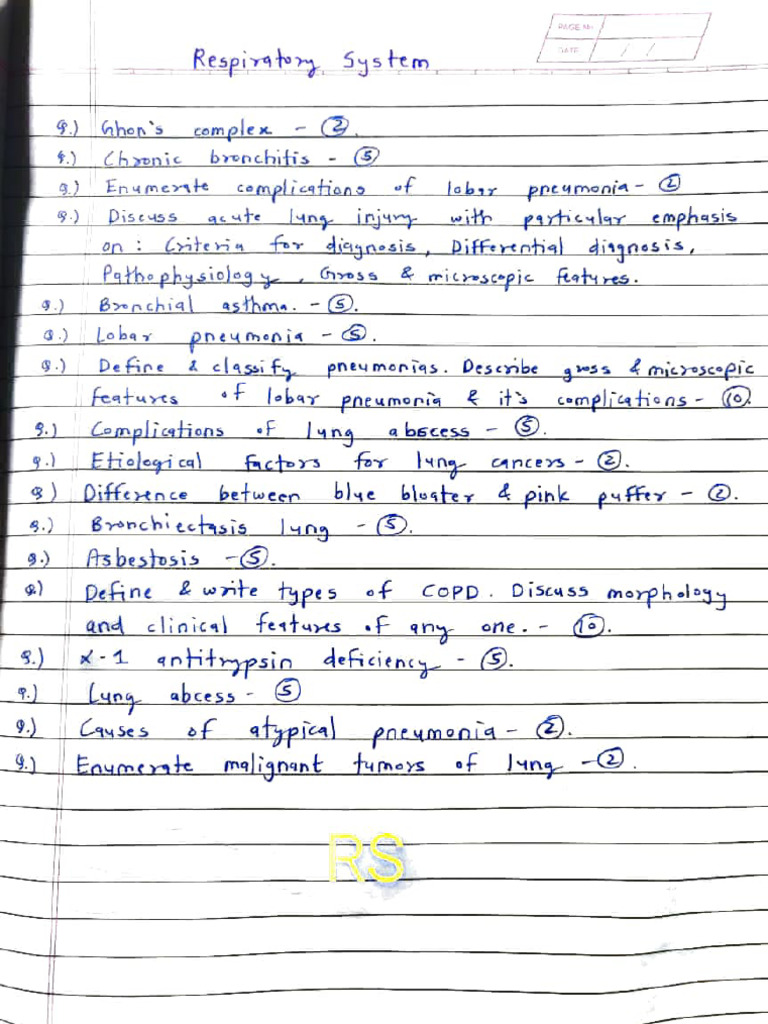 PAGE No.
DATE / /
Respiratory System
Q.) Ghon's complex - ②.
Q.) Chronic bronchitis - ⑤
Q.) Enumerate complications of lobar pneumonia - ②
Q.) Discuss acute lung injury with particular emphasis
on : Criteria for diagnosis, Differential diagnosis,
Pathophysiology, Gross & microscopic features.
Q.) Bronchial asthma. - ⑤.
Q.) Lobar pneumonia - ⑤.
Q.) Define & classify pneumonias. Describe gross & microscopic
features of lobar pneumonia & it's complications - ⑩.
Q.) Complications of lung abscess - ⑤.
Q.) Etiological factors for lung cancers - ②.
Q) Difference between blue bloater & pink puffer - ②.
Q.) Bronchiectasis lung - ⑤.
Q.) Asbestosis - ⑤.
Q) Define & write types of COPD. Discuss morphology
and clinical features of any one. - ⑩.
Q.) α-1 antitrypsin deficiency - ⑤.
Q.) Lung abcess - ⑤
Q.) Causes of atypical pneumonia - ②.
Q.) Enumerate malignant tumors of lung - ②.
RS